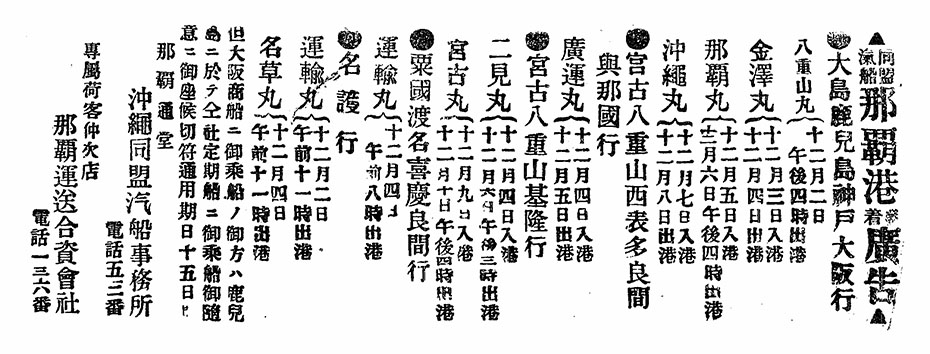 ▲同盟汽船那覇港発着廣告▲
●大島鹿兒島神戸大阪行
八重山丸{十二月二日午後四時出港
金澤丸{十二月三日入港十二月四日出港
那覇丸{十二月五日入港十二月六日午後四時出港
沖繩丸{十二月七日入港十二月八日出港
●宮古八重山西表多良間
與那國行
廣運丸{十二月四日入港十二月五日出港
●宮古八重山基隆行
二見丸{十二月四日入港十二月六日午後三時出港
宮古丸{十二月九日入港十二月十日午後四時出港
●粟國渡名喜慶良間行
運輸丸{十二月四日午前八時出港
●名護行
運輸丸{十二月二日午前十一時出港
名草丸{十二月四日午前十一時出港
但大阪商船ニ御乘船ノ御方ハ鹿兒
島ニ於テ仝社定期船ニ御乘船御隨
意ニ御座候切符通用期日十五日ト
那覇通堂
沖繩同盟汽船事務所
電話五三番
專屬荷客仲次店
那覇運送合資會社
電話一三六番